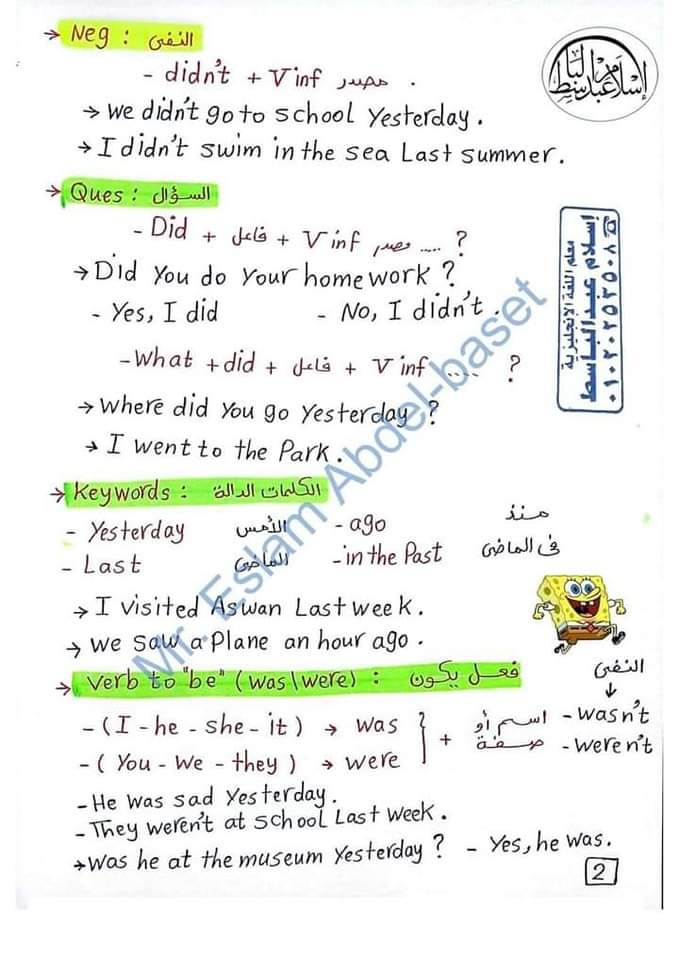 → Neg : النفى
- didn't + V inf مصدر .
→ we didn't go to school Yesterday.
→ I didn't swim in the sea Last summer.
→ Ques : السؤال
- Did + فاعل + V inf مصدر ..... ?
→ Did You do Your homework ?
- Yes, I did - No, I didn't .
- What + did + فاعل + V inf ..... ?
→ where did You go Yesterday ?
→ I went to the Park.
→ Keywords : الكلمات الدالة
- Yesterday الأمس - ago منذ
- Last الماضى - in the Past فى الماضى
→ I visited Aswan Last week.
→ we saw a Plane an hour ago .
→ verb to "be" (was/were) : فعل يكون
النفى
↓
- (I - he - she - it) → was
- (You - we - they) → were
+ اسم أو
صفة
- wasn't
- weren't
- He was sad Yesterday.
- They weren't at school Last week.
→ was he at the museum Yesterday ? - Yes, he was.
2
إسلام عبدالباسط
معلم اللغة الإنجليزية
إسلام عبدالباسط
٠١٠٢٠٢٥٢٥٠٨
Mr. Eslam Abdel-baset